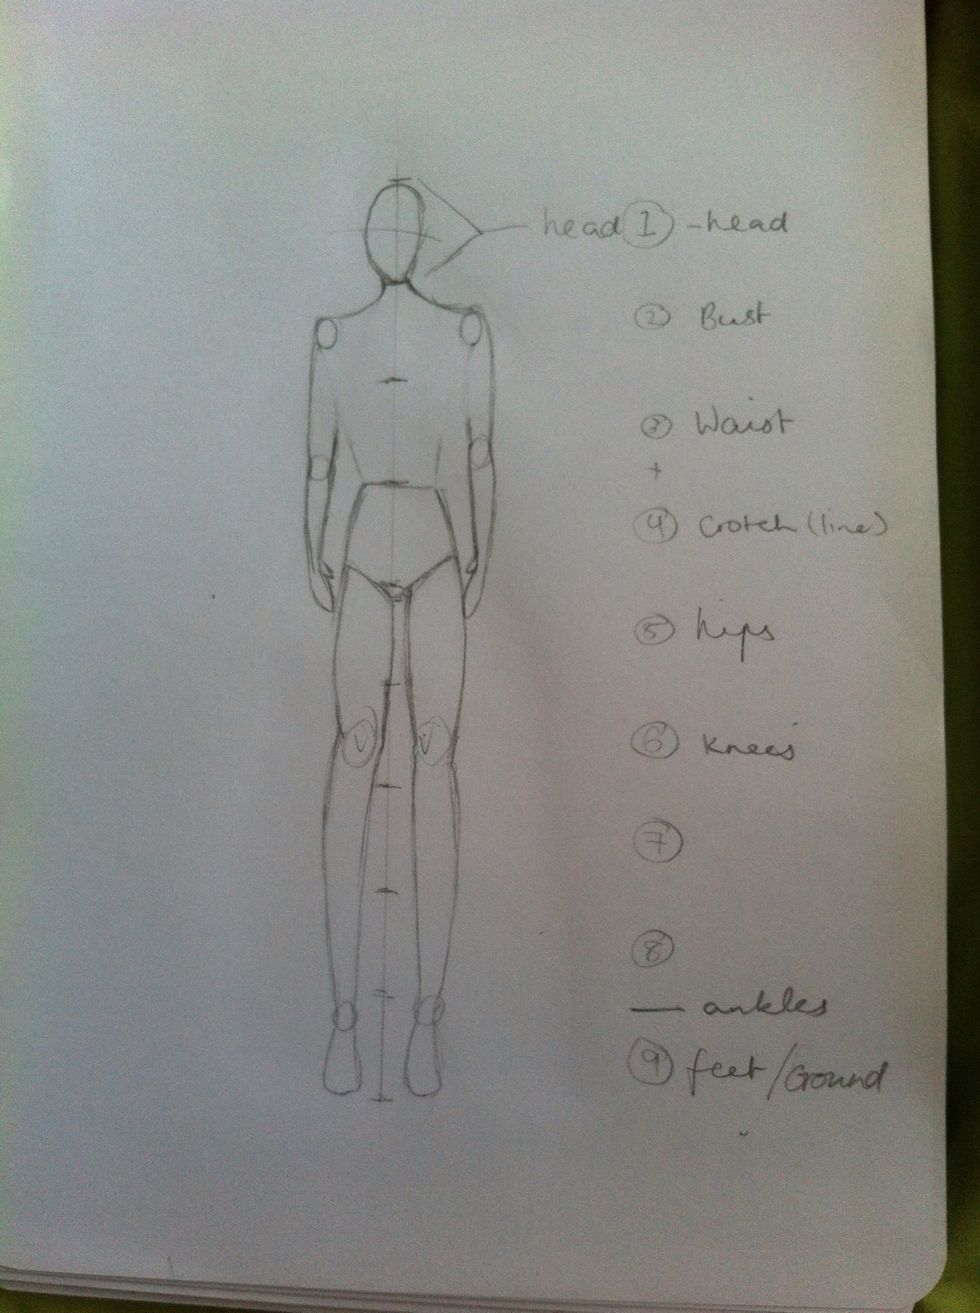 head 1 - head
2 Bust
3 Waist
+
4 Crotch (line)
5 hips
6 knees
7
8
— ankles
9 feet/Ground